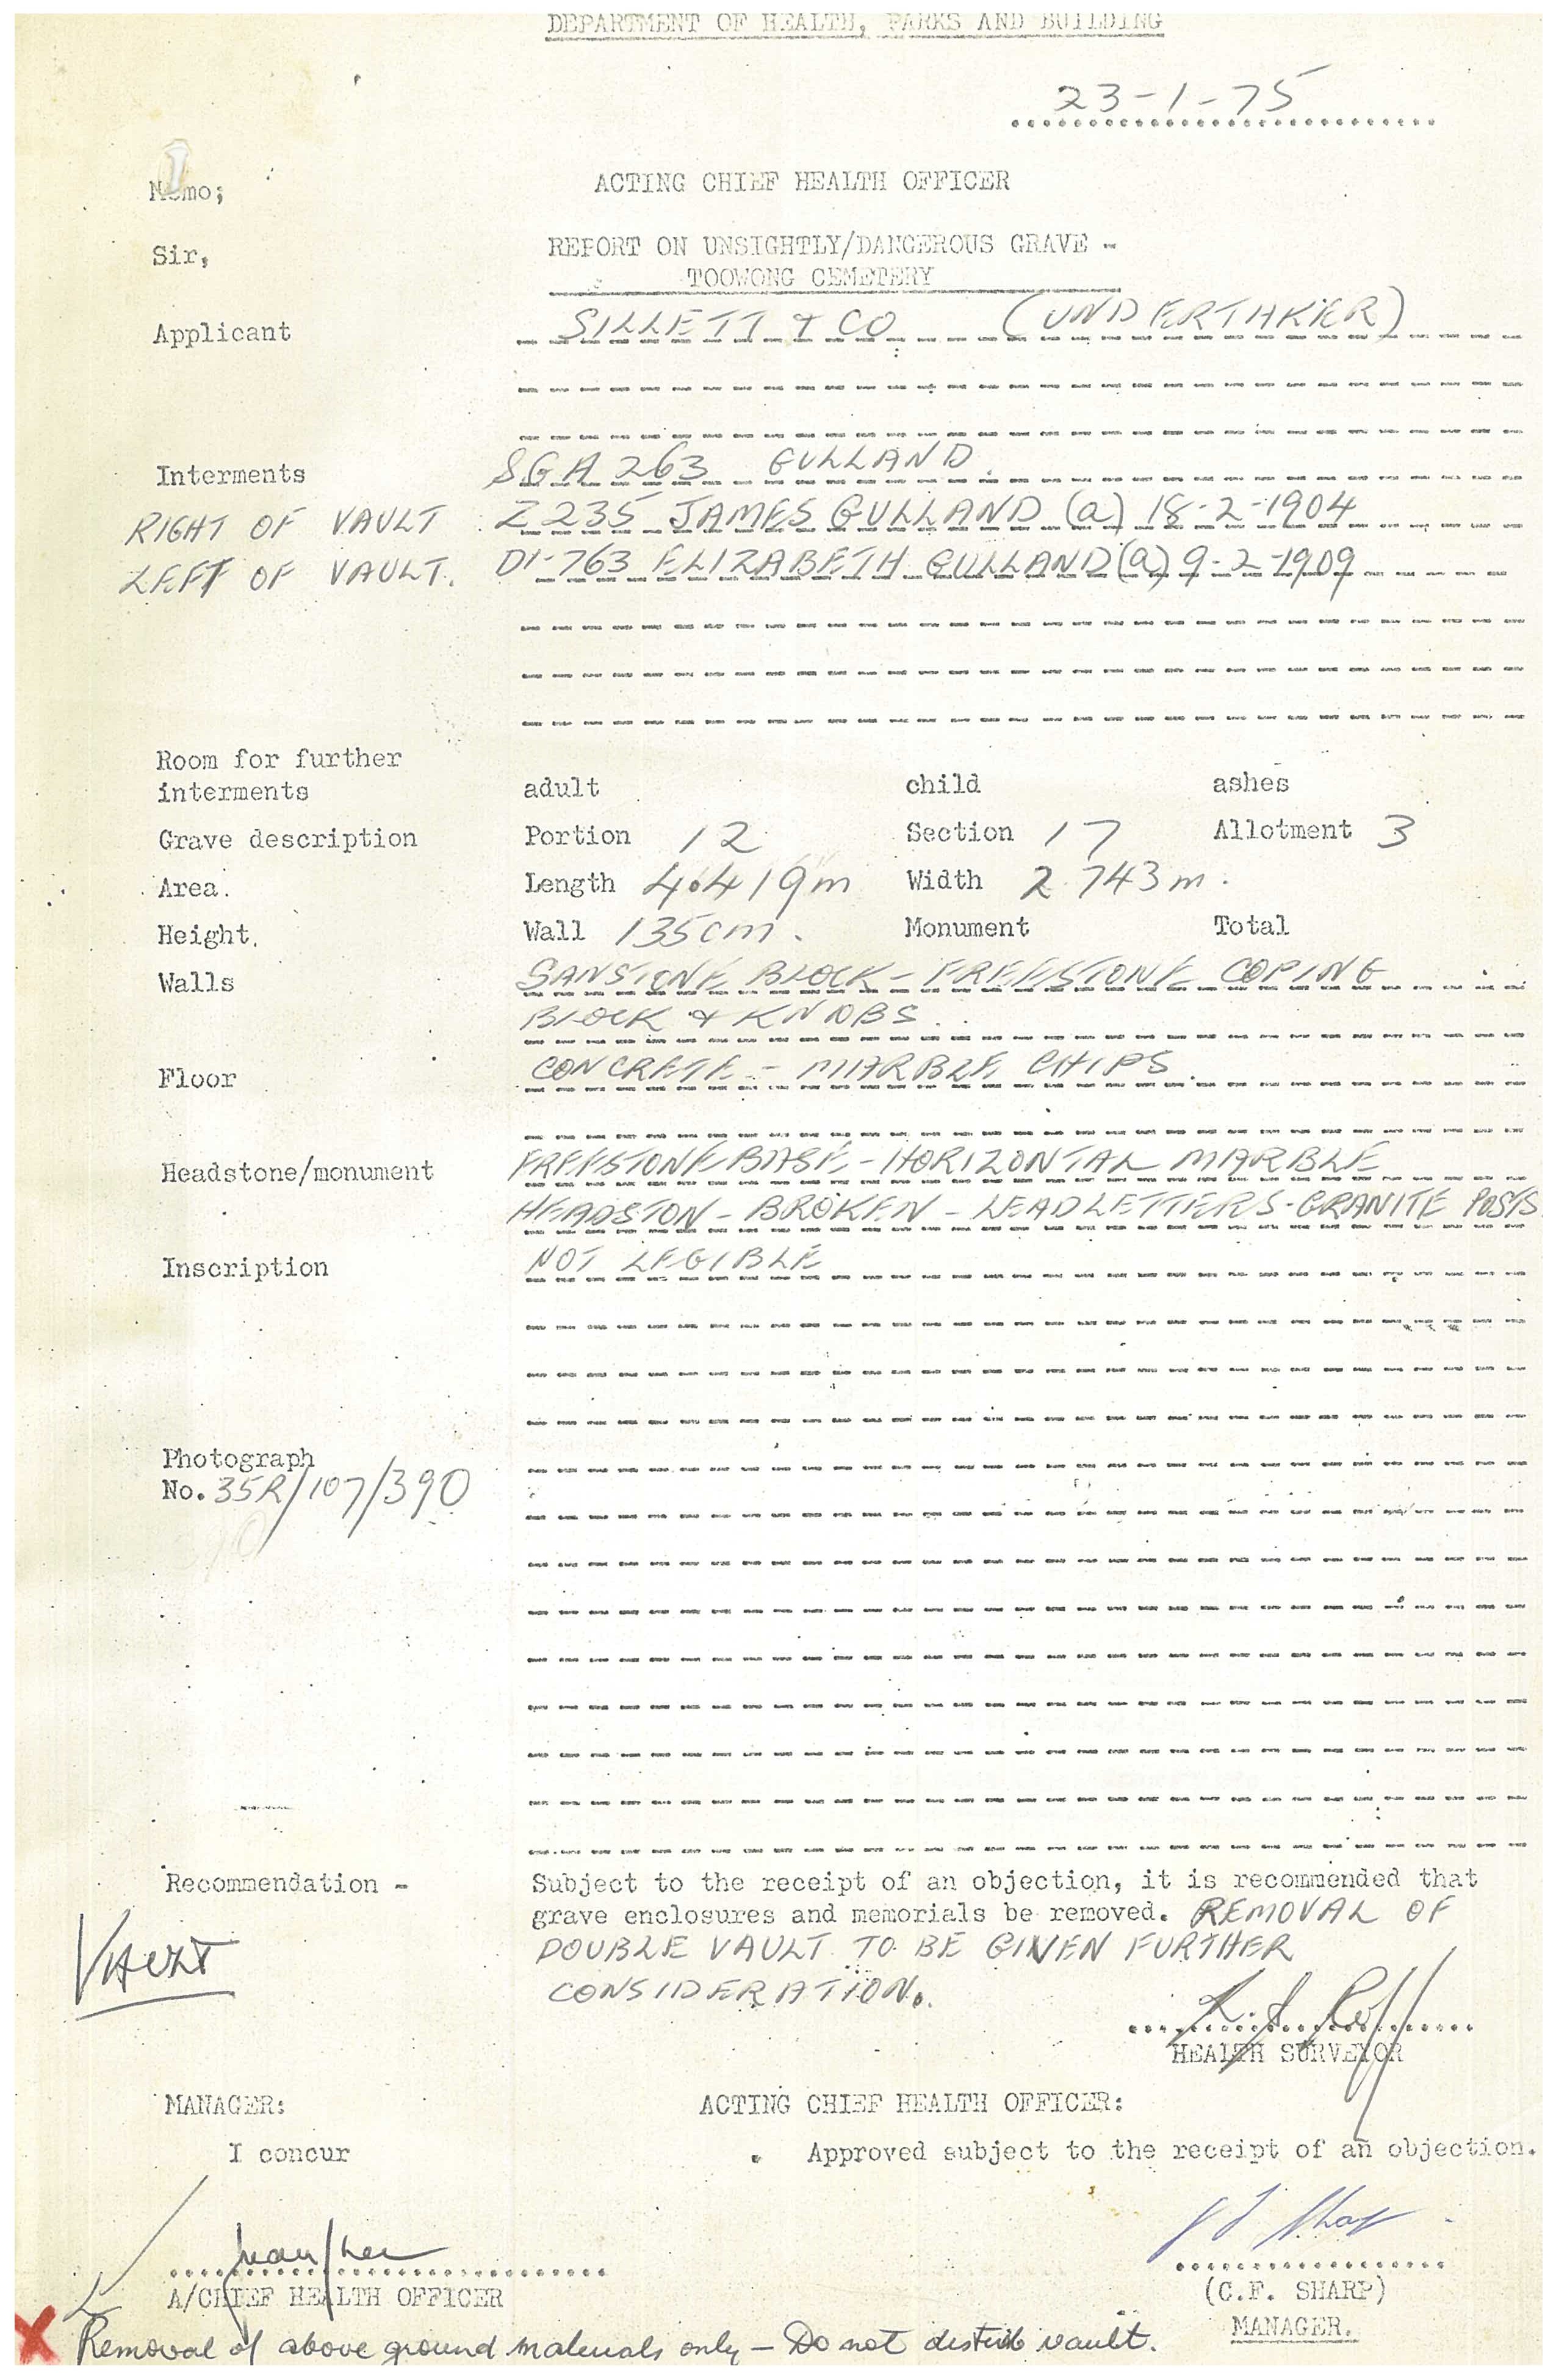 DEPARTMENT OF HEALTH, PARKS AND BUILDING
23-1-75
Memo; ACTING CHIEF HEALTH OFFICER
Sir, REPORT ON UNSIGHTLY/DANGEROUS GRAVE -
TOOWONG CEMETERY
Applicant SILLETT & CO (UNDERTAKER)
Interments SGA 263 GULLAND.
RIGHT OF VAULT Z 235 JAMES GULLAND (a) 18-2-1904
LEFT OF VAULT. D1-763 ELIZABETH GULLAND (a) 9-2-1909
Room for further
interments adult child ashes
Grave description Portion 12 Section 17 Allotment 3
Area. Length 4.419m Width 2.743m.
Height. Wall 135cm. Monument Total
Walls SANSTONE BLOCK - FREESTONE COPING
BLOCK & KNOBS.
Floor CONCRETE - MARBLE CHIPS.
Headstone/monument FREESTONE BASE - HORIZONTAL MARBLE
HEADSTON - BROKEN - LEAD LETTERS - GRANITE POSTS
Inscription NOT LEGIBLE
Photograph
No. 35R/107/390
Recommendation - Subject to the receipt of an objection, it is recommended that
grave enclosures and memorials be removed. REMOVAL OF
VAULT DOUBLE VAULT TO BE GIVEN FURTHER
CONSIDERATION.
HEALTH SURVEYOR
MANAGER: ACTING CHIEF HEALTH OFFICER:
I concur Approved subject to the receipt of an objection.
A/CHIEF HEALTH OFFICER (C.F. SHARP)
MANAGER.
X Removal of above ground materials only - Do not disturb vault.